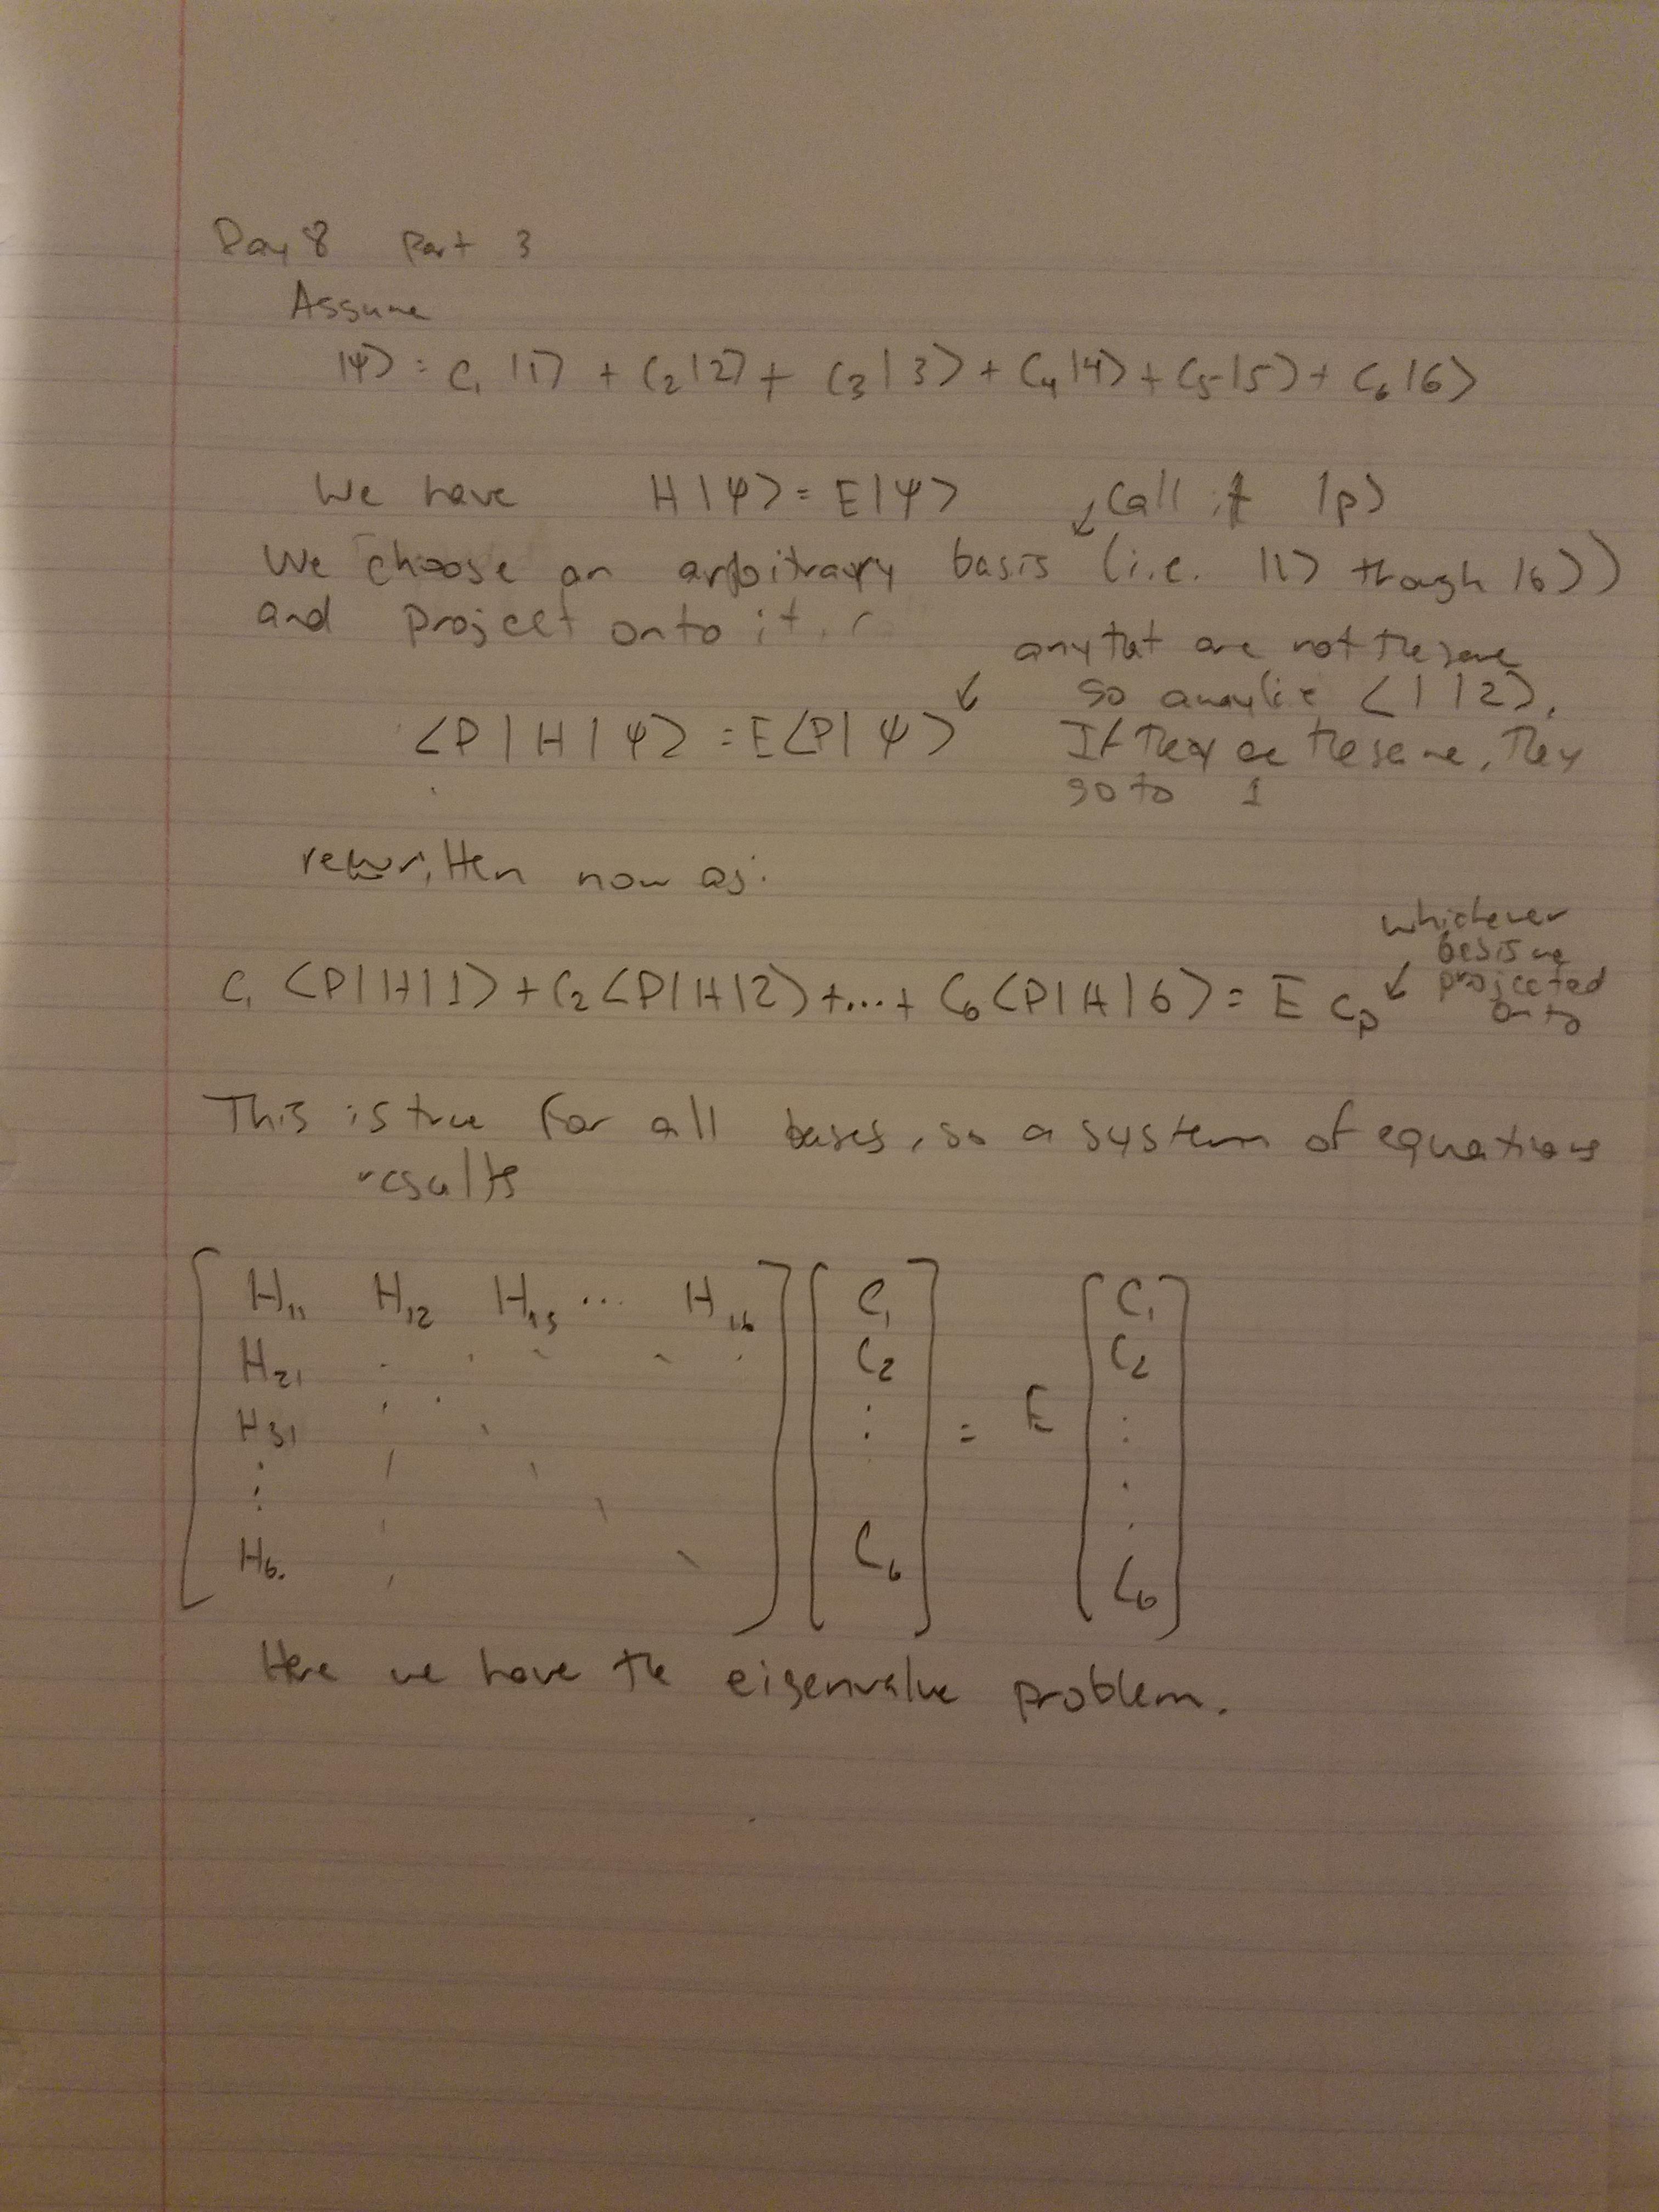 Day 8 Part 3
Assume
|ψ> = C₁ |1> + C₂ |2> + C₃ | 3> + C₄ |4> + C₅ |5> + C₆ |6>
We have H | ψ > = E | ψ >
↙ Call it |p>
We choose an arbitrary basis (i.e. |1> though |6>)
and project onto it.
<P | H | ψ> = E <P | ψ>
↙ any that are not the same
so <1 | 2>.
If they are the same, they
go to 1
rewritten now as:
C₁ <P | H | 1> + C₂ <P | H | 2> + ... + C₆ <P | H | 6> = E Cₚ
↙ whichever
basis we
projected
onto
This is true for all bases, so a system of equations
results
[ H₁₁ H₁₂ H₁₃ ... H₁₆ ] [ C₁ ] [ C₁ ]
H₂₁ C₂ C₂
H₃₁ : = E :
:
H₆. C₆ C₆
Here we have the eigenvalue problem.